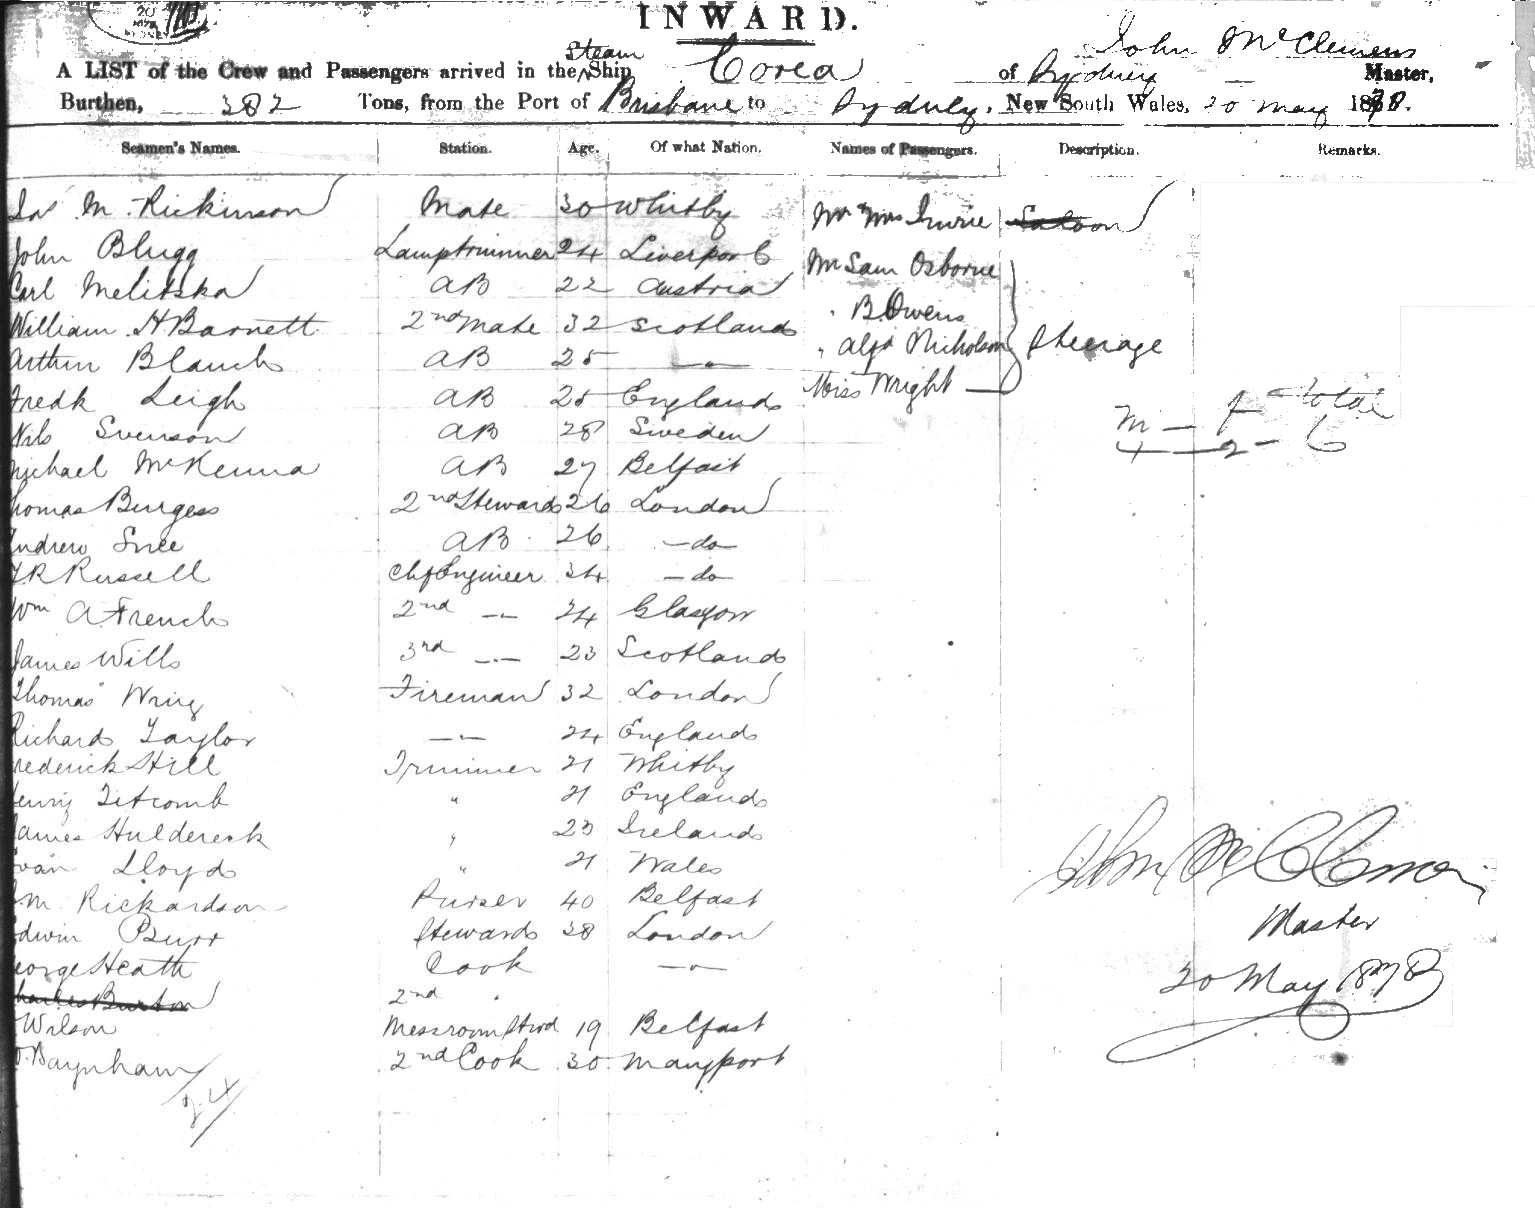 20
INWARD.
A LIST of the Crew and Passengers arrived in the Steam Ship Corea of Sydney John McClemens Master,
Burthen, 382 Tons, from the Port of Brisbane to Sydney, New South Wales, 20 May 1878.
Seamen's Names. Station. Age. Of what Nation. Names of Passengers. Description. Remarks.
Jas M. Rickinson Mate 30 Whitby Mr & Mrs Irvine Saloon
John Blugg Lamptrimmer 24 Liverpool Mr Sam Osborne
Carl Melitska AB 22 Austria " B. Owens
William H Barnett 2nd Mate 32 Scotland " Alfd Nicholson Steerage
Arthur Blanch AB 25 —"— Miss Wright
Fredk Leigh AB 25 England M — f — Total
Nils Svenson AB 28 Sweden 4 — 2 — 6
Michael McKenna AB 27 Belfast
Thomas Burgess 2nd Steward 26 London
Andrew Snee AB 26 —do—
Russell Chf Engineer 34 —do—
Wm A French 2nd —"— 24 Glasgow
James Wills 3rd —"— 23 Scotland
Thomas Wring Fireman 32 London
Richard Taylor —"— 24 England
Frederick Hill Trimmer 21 Whitby
Henry Titcomb " 21 England
James Huldereek " 23 Ireland
Evan Lloyd " 21 Wales
Rickardson Purser 40 Belfast
Edwin Burr Steward 38 London
George Heath Cook —"—
Charles Burton 2nd "
Wilson Messroom Stwd 19 Belfast
Baynham 2nd Cook 30 Maryport
24
John McClemens
Master
20 May 1878